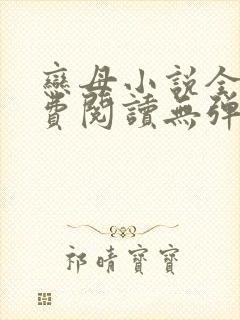 戀母小說全
費閱讀無彈
祁晴寶寶